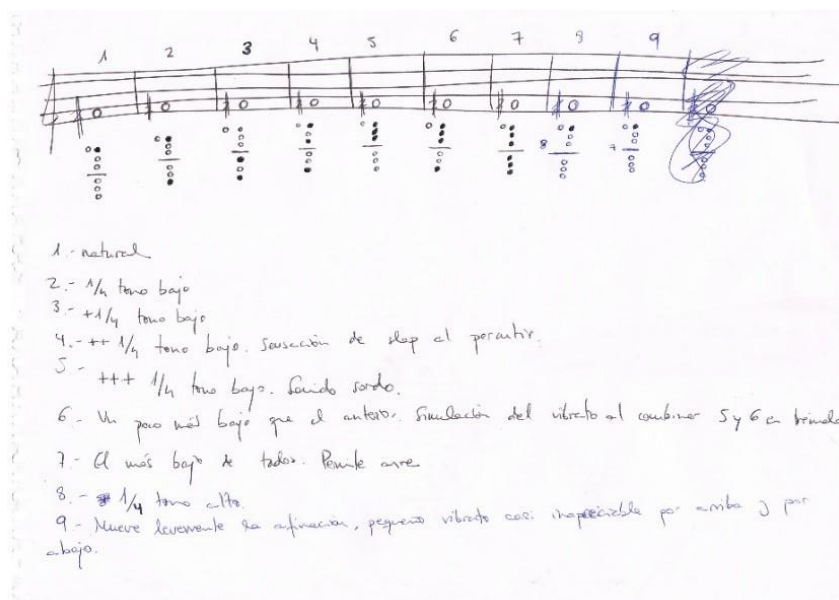 1 2 3 4 5 6 7 8 9
8 7
1.- natural
2.- 1/4 tono bajo
3.- +1/4 tono bajo
4.- ++ 1/4 tono bajo. Sensación de slap al percutir.
5.-
+++ 1/4 tono bajo. Sonido sordo.
6.- Un poco más bajo que el anterior. Simulación del vibrato al combinar 5 y 6 en
7.- El más bajo de todos. Permite
8.- 1/4 tono alto.
9.- Mueve levemente la afinación, pequeño vibrato casi inapreciable por arriba y por
abajo.